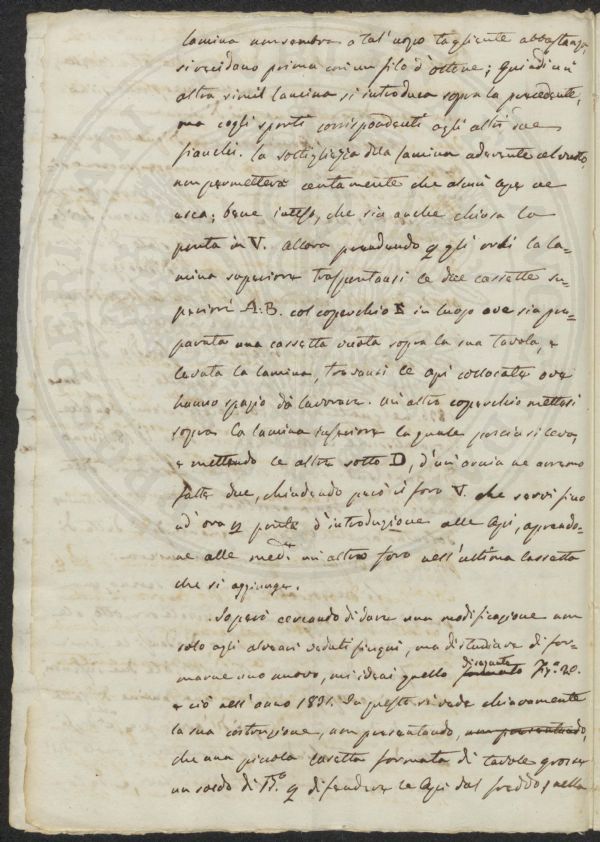 lamina non sembra a tal' uopo tagliente abbastanza,
si recidano prima con un filo d'ottone; quindi un'
altra simil lamina si introduca sopra la precedente,
ma cogli sporti corrispondenti agli altri due
fianchi. la sottigliezza della lamina aderente
non permetterà certamente che alcun ape ne
esca; bene inteso, che sia anche chiusa la
porta in V. allora prendendo p gli orli la la-
mina superiore trasportansi le due cassette su-
periori A. B. col coperchio E in luogo ove sia pre-
parata una cassetta vuota sopra la sua tavola, e
levata la lamina, trovansi le api collocate ove
hanno spazio di lavorare. un altro coperchio mettesi
sopra la lamina inferiore la quale poscia si leva,
e mettendo le altre sotto D, d'un' arnia ne avremo
fatte due, chiudendo però il foro V. che servì fino
ad' ora p porta d'introduzione alle Api, aprendo-
ne alle med.e un altro foro nell' ultima cassetta
che si aggiunge.
Saperi cercando di dare una modificazione non
solo agli alveari veduti finqui, ma di studiare di for-
marne uno nuovo, mi ideai quello formato disegnato Fig.a 20.
e ciò nell' anno 1831. In queste si vede chiaramente
la sua costruzione, non presentando, non presentando,
che una piccola casetta formata di tavole grosse
un soldo di B.o p difendere le Api dal freddo, nella